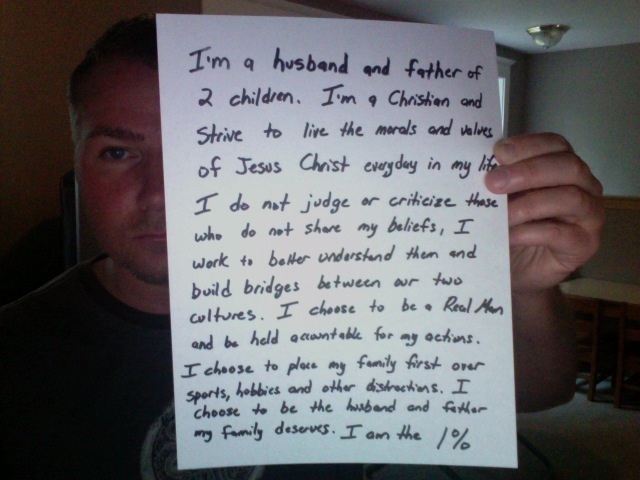 I'm a husband and father of
2 children. I'm a Christian and
strive to live the morals and values
of Jesus Christ everyday in my life
I do not judge or criticize those
who do not share my beliefs, I
work to better understand them and
build bridges between our two
cultures. I choose to be a Real Man
and be held accountable for my actions.
I choose to place my family first over
sports, hobbies and other distractions. I
choose to be the husband and father
my family deserves. I am the 1%